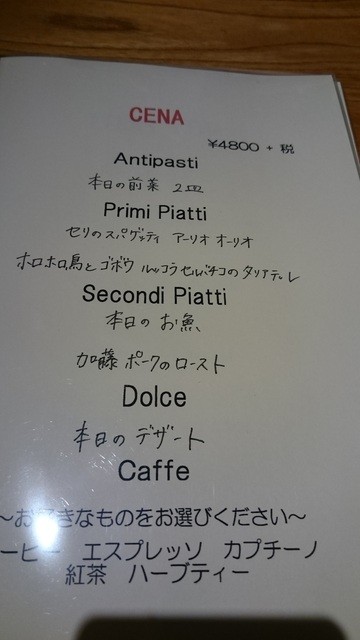 CENA
¥4800 + 税
Antipasti
本日の前菜 2皿
Primi Piatti
セリのスパゲッティ アーリオ オーリオ
ホロホロ鳥とゴボウ ルッコラセルバチコのタリアテーレ
Secondi Piatti
本日の お魚
加藤 ポークのロースト
Dolce
本日の デザート
Caffe
〜お好きなものをお選びください〜
ーヒー エスプレッソ カプチーノ
紅茶 ハーブティー